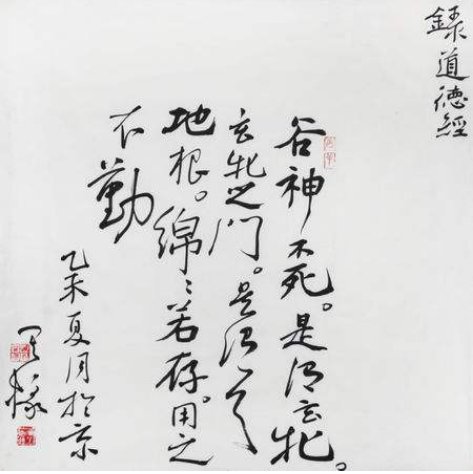 録道德經
谷神不死。是谓玄牝。
玄牝之门。是谓天
地根。綿〻若存。用之
不勤
乙未夏月於京